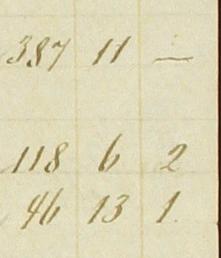 387 11 —
118 6 2
46 13 1